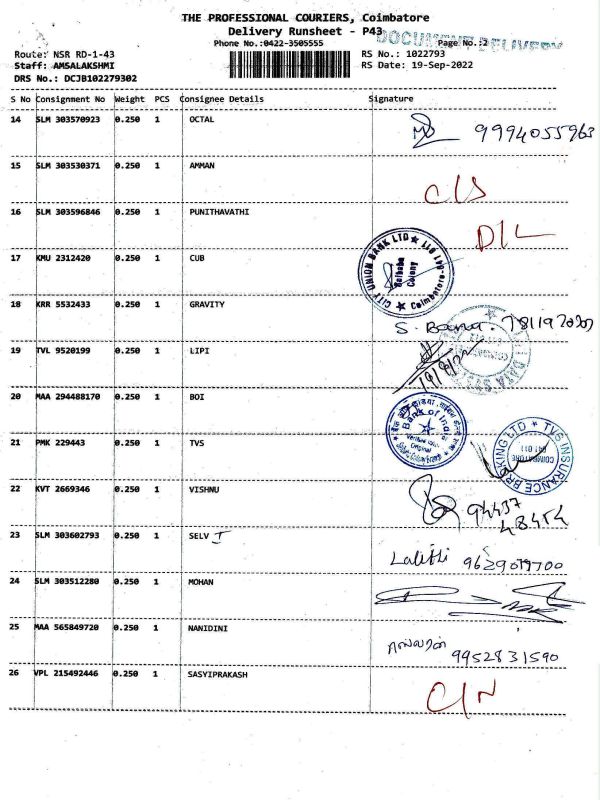 THE PROFESSIONAL COURIERS, Coimbatore
Delivery Runsheet - P43
DOCUMENT DELIVERY
Phone No.:0422-3505555
Page No.:2
Route: NSR RD-1-43
RS No.: 1022793
Staff: AMSALAKSHMI
RS Date: 19-Sep-2022
DRS No.: DCJB102279302
S No Consignment No Weight PCS Consignee Details Signature
14 SLM 303570923 0.250 1 OCTAL 9994055963
15 SLM 303530371 0.250 1 AMMAN C/S
16 SLM 303596846 0.250 1 PUNITHAVATHI D/L
17 KMU 2312420 0.250 1 CUB
CITY UNION BANK LTD ★ 641 011 ★ Coimbatore
Saibaba
Colony
18 KRR 5532433 0.250 1 GRAVITY
19 TVL 9520199 0.250 1 LIPI
20 MAA 294488170 0.250 1 BOI
Bank of India
Verified with
Original
21 PMK 229443 0.250 1 TVS
TVS INSURANCE BROKING LTD ★
COIMBATORE
641 011
22 KVT 2669346 0.250 1 VISHNU 94437
48454
23 SLM 303602793 0.250 1 SELV I Lalithi
24 SLM 303512280 0.250 1 MOHAN
25 MAA 565849720 0.250 1 NANIDINI 9952831590
26 VPL 215492446 0.250 1 SASYIPRAKASH C/N